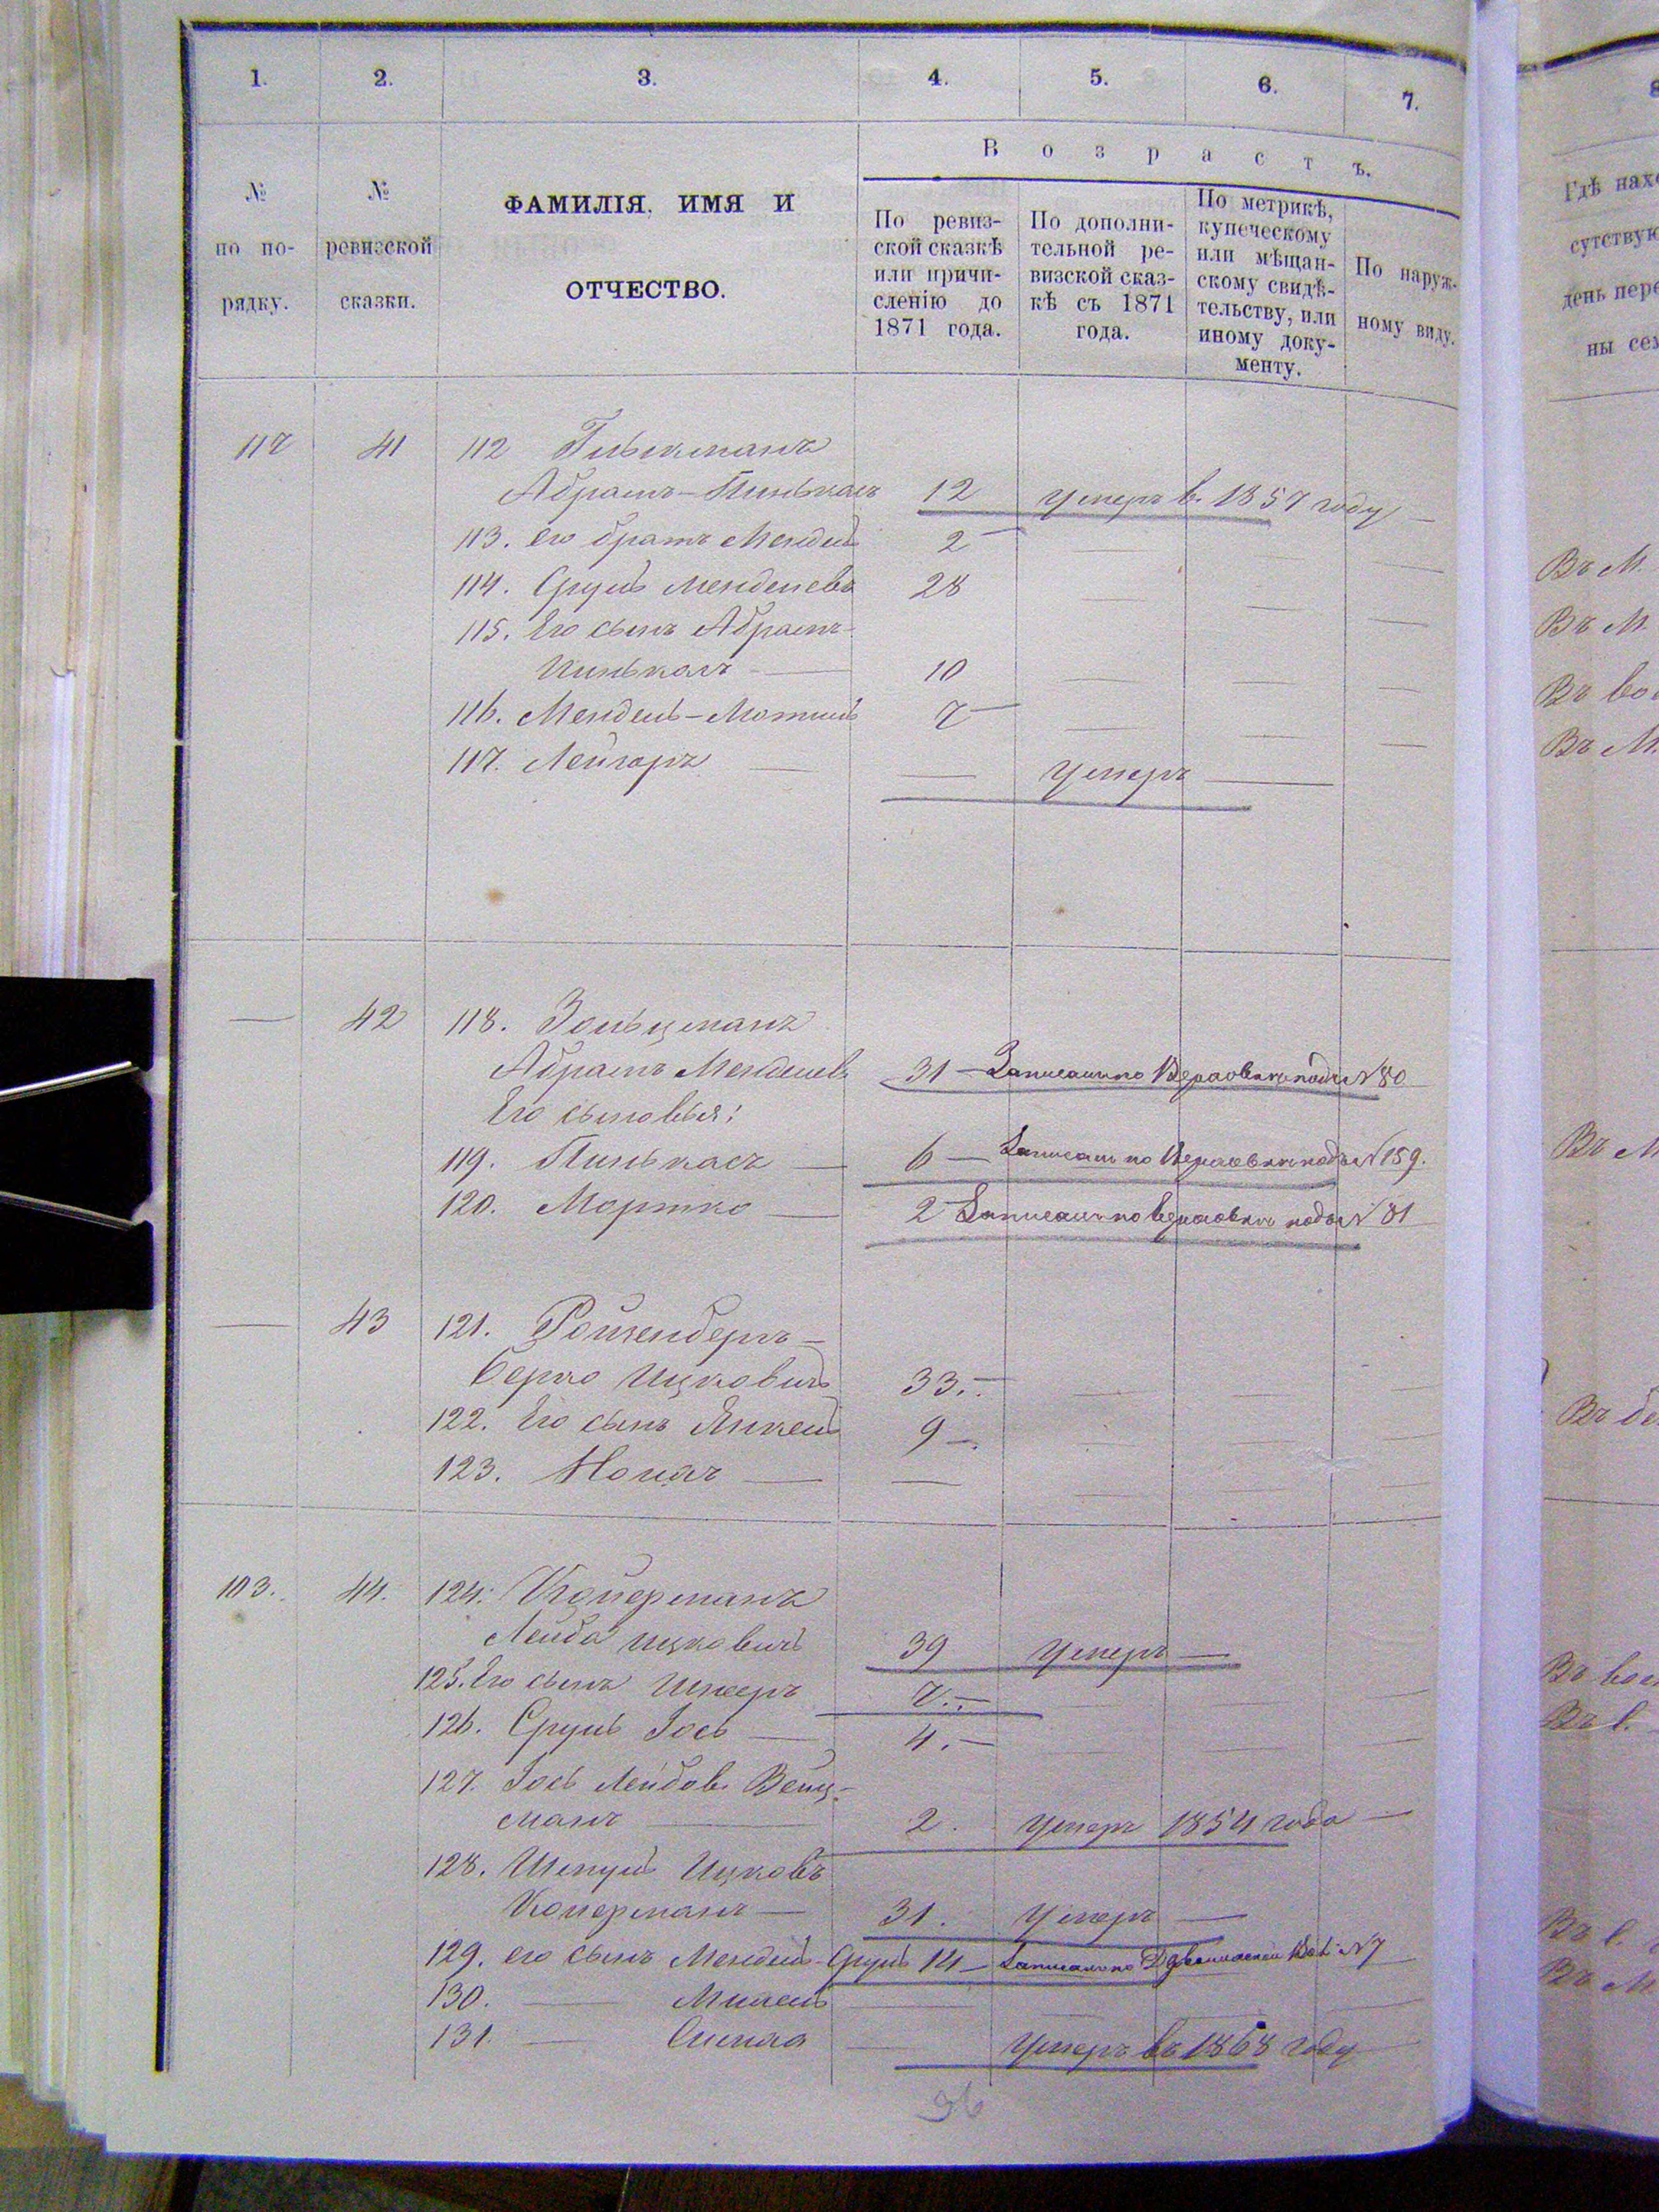 1. 2. 3. 4. 5. 6. 7.
В о з р а с т ъ.
№ по по-
рядку.
№ ревизской
сказки.
ФАМИЛІЯ, ИМЯ И
ОТЧЕСТВО.
По ревиз-
ской сказкѣ
или причи-
сленію до
1871 года.
По дополни-
тельной ре-
визской сказ-
кѣ съ 1871
года.
По метрикѣ,
купеческому
или мѣщан-
скому свидѣ-
тельству, или
иному доку-
менту.
По наруж-
ному виду.
117 41 112
Абрамъ-Пинькасъ 12 умеръ в. 1857 году
113. его братъ Мендель 2
114. Сруль Менделевъ 28
115. Его сынъ Абрамъ-
Пинькасъ 10
116. Мендель-Мотель 7
117. Лейзоръ умеръ
42 118. Зальцманъ
Абрамъ Менделевъ 31 Записанъ по подъ № 80
Его сыновья:
119. Пинькасъ 6 Записанъ по подъ № 159.
120. Мортко 2 Записанъ по подъ № 81
43 121. Розенбергъ
Берко Ицковичъ 33.
122. Его сынъ Янкель 9
123.
103. 44. 124. Куперманъ
Лейба Ицковичъ 39 умеръ
125. Его сынъ 7.
126. Сруль Іось 4.
127. Іось Лейбов. Вейц-
манъ 2. умеръ 1854 года
128. Шмуль Ицковъ
Куперманъ 31. умеръ
129. его сынъ Мендель-Сруль 14 Записанъ по № 7
130.
131. умеръ въ 1868 году
36
Гдѣ нахо
сутствую
день пере
ны сем
Въ М.
Въ М.
Въ во
Въ М.
Въ М